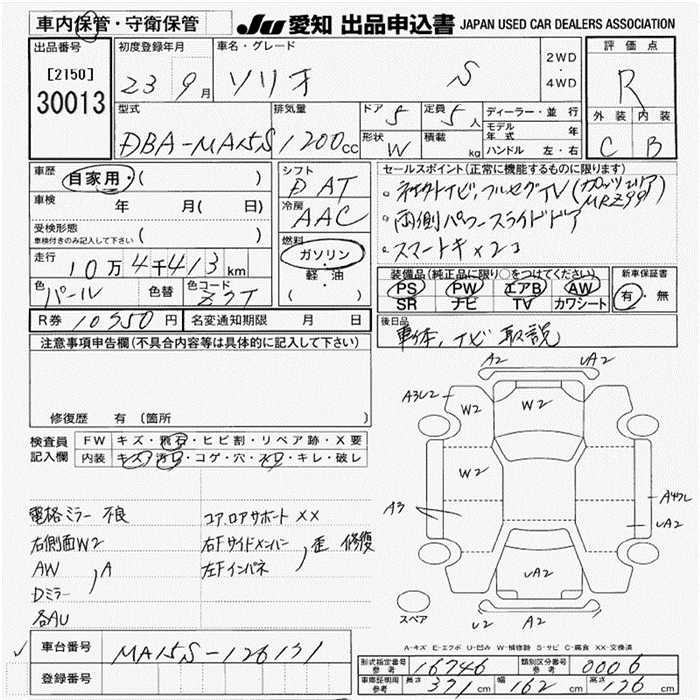 車内保管・守衛保管 JU 愛知 出品申込書 JAPAN USED CAR DEALERS ASSOCIATION
出品番号 [2150] 30013
初度登録年月 23 9月
車名・グレード ソリオ S
2WD ・ 4WD
評価点 R
外装 C 内装 B
型式 DBA-MA15S
排気量 1200cc
ドア 5 定員 5人
形状 W 積載 kg
ディーラー・並行
モデル年式 年
ハンドル 左・右
車歴 自家用・( )
車検 年 月( 日)
受検形態 車検付きのみ記入して下さい ( )
走行 10万4千413km
色 パール 色替 色コード Z7T
シフト DAT
冷房 AAC
燃料 ガソリン・軽・油 ( )
セールスポイント(正常に機能するものに限ります)
・社外ナビ、フルセグTV
・両側パワースライドドア
・スマートキー×2コ
装備品(純正品に限り○をつけてください)
PS PW エアB AW
SR ナビ TV カワシート
新車保証書 有・無
R券 10350円 名変通知期限 月 日
後日品 車体、ナビ 取説
注意事項申告欄(不具合内容等は具体的に記入して下さい)
修復歴 有 (箇所 )
検査員記入欄
FW キズ・飛石・ヒビ割・リペア跡・X要
内装 キズ・汚れ・コゲ・穴・スレ・キレ・破レ
電格ミラー 不良
右側面W2
AW
Dミラー 、A
各AU
コア、ロアサポート XX
右Fサイドメンバー
左Fインパネ 、歪 修復
A2 UA2
A3U2 W2 W2
W2
A3 UA2
UA2
U2 A2
スペア
A-キズ E-エクボ U-凹み W-補修跡 S-サビ C-腐食 XX-交換済
車台番号 MA15S-126131
登録番号
型式指定番号 参考 16746 類別区分番号 参考 0006
車庫証明用 参考 長さ 371cm 幅 162cm 高さ 176cm